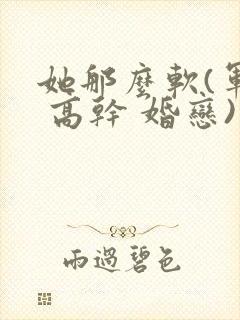 她那麼軟(軍
高幹 婚戀)
雨過碧色